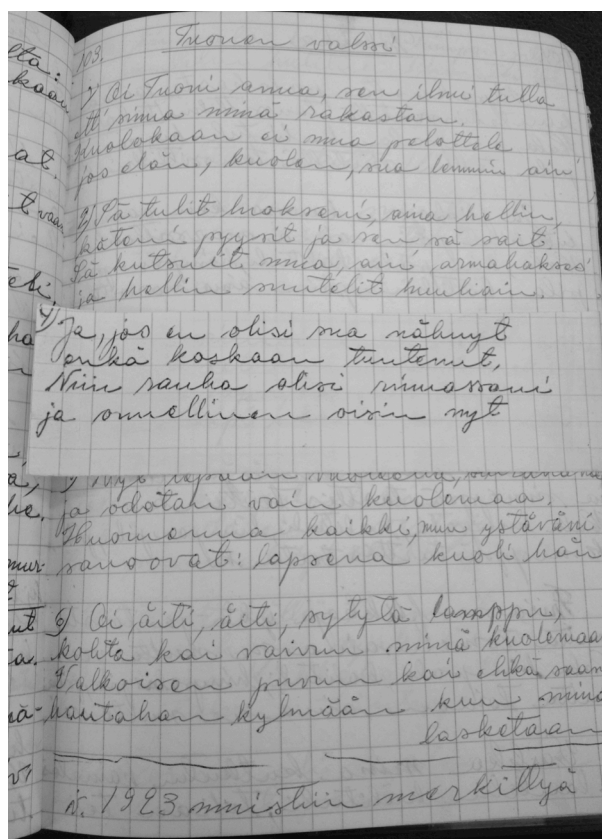 103. Tuonen valssi
1) Oi Tuoni armas, sen ilmi tulla
ett' sinua minä rakastan.
Kuolokaan ei mua pelottele
jos elän, kuolen, sua lemmin ain'
2) Sä tulit luokseni, aina hellin,
käteni pyysit ja sen sä sait.
Sä kutsuit mua, ain' armahakses
ja hellin suutelit huuliain.
4) Ja, jos en olisi sua nähnyt
enkä koskaan tuntenut,
Niin rauha olisi rinnassani
ja onnellinen oisin nyt
ja odotan vain kuolemaa.
Huomenna kaikki, mun ystäväni
sanoovat: lapsena kuoli hän
6) Oi, äiti, äiti, sytytä lamppu,
kohta kai vaivun minä kuolemaa
Valkoisen puvun kai ehkä saan
hautahan kylmään kun minä
lasketaan
v. 1923 muistiin merkittyä